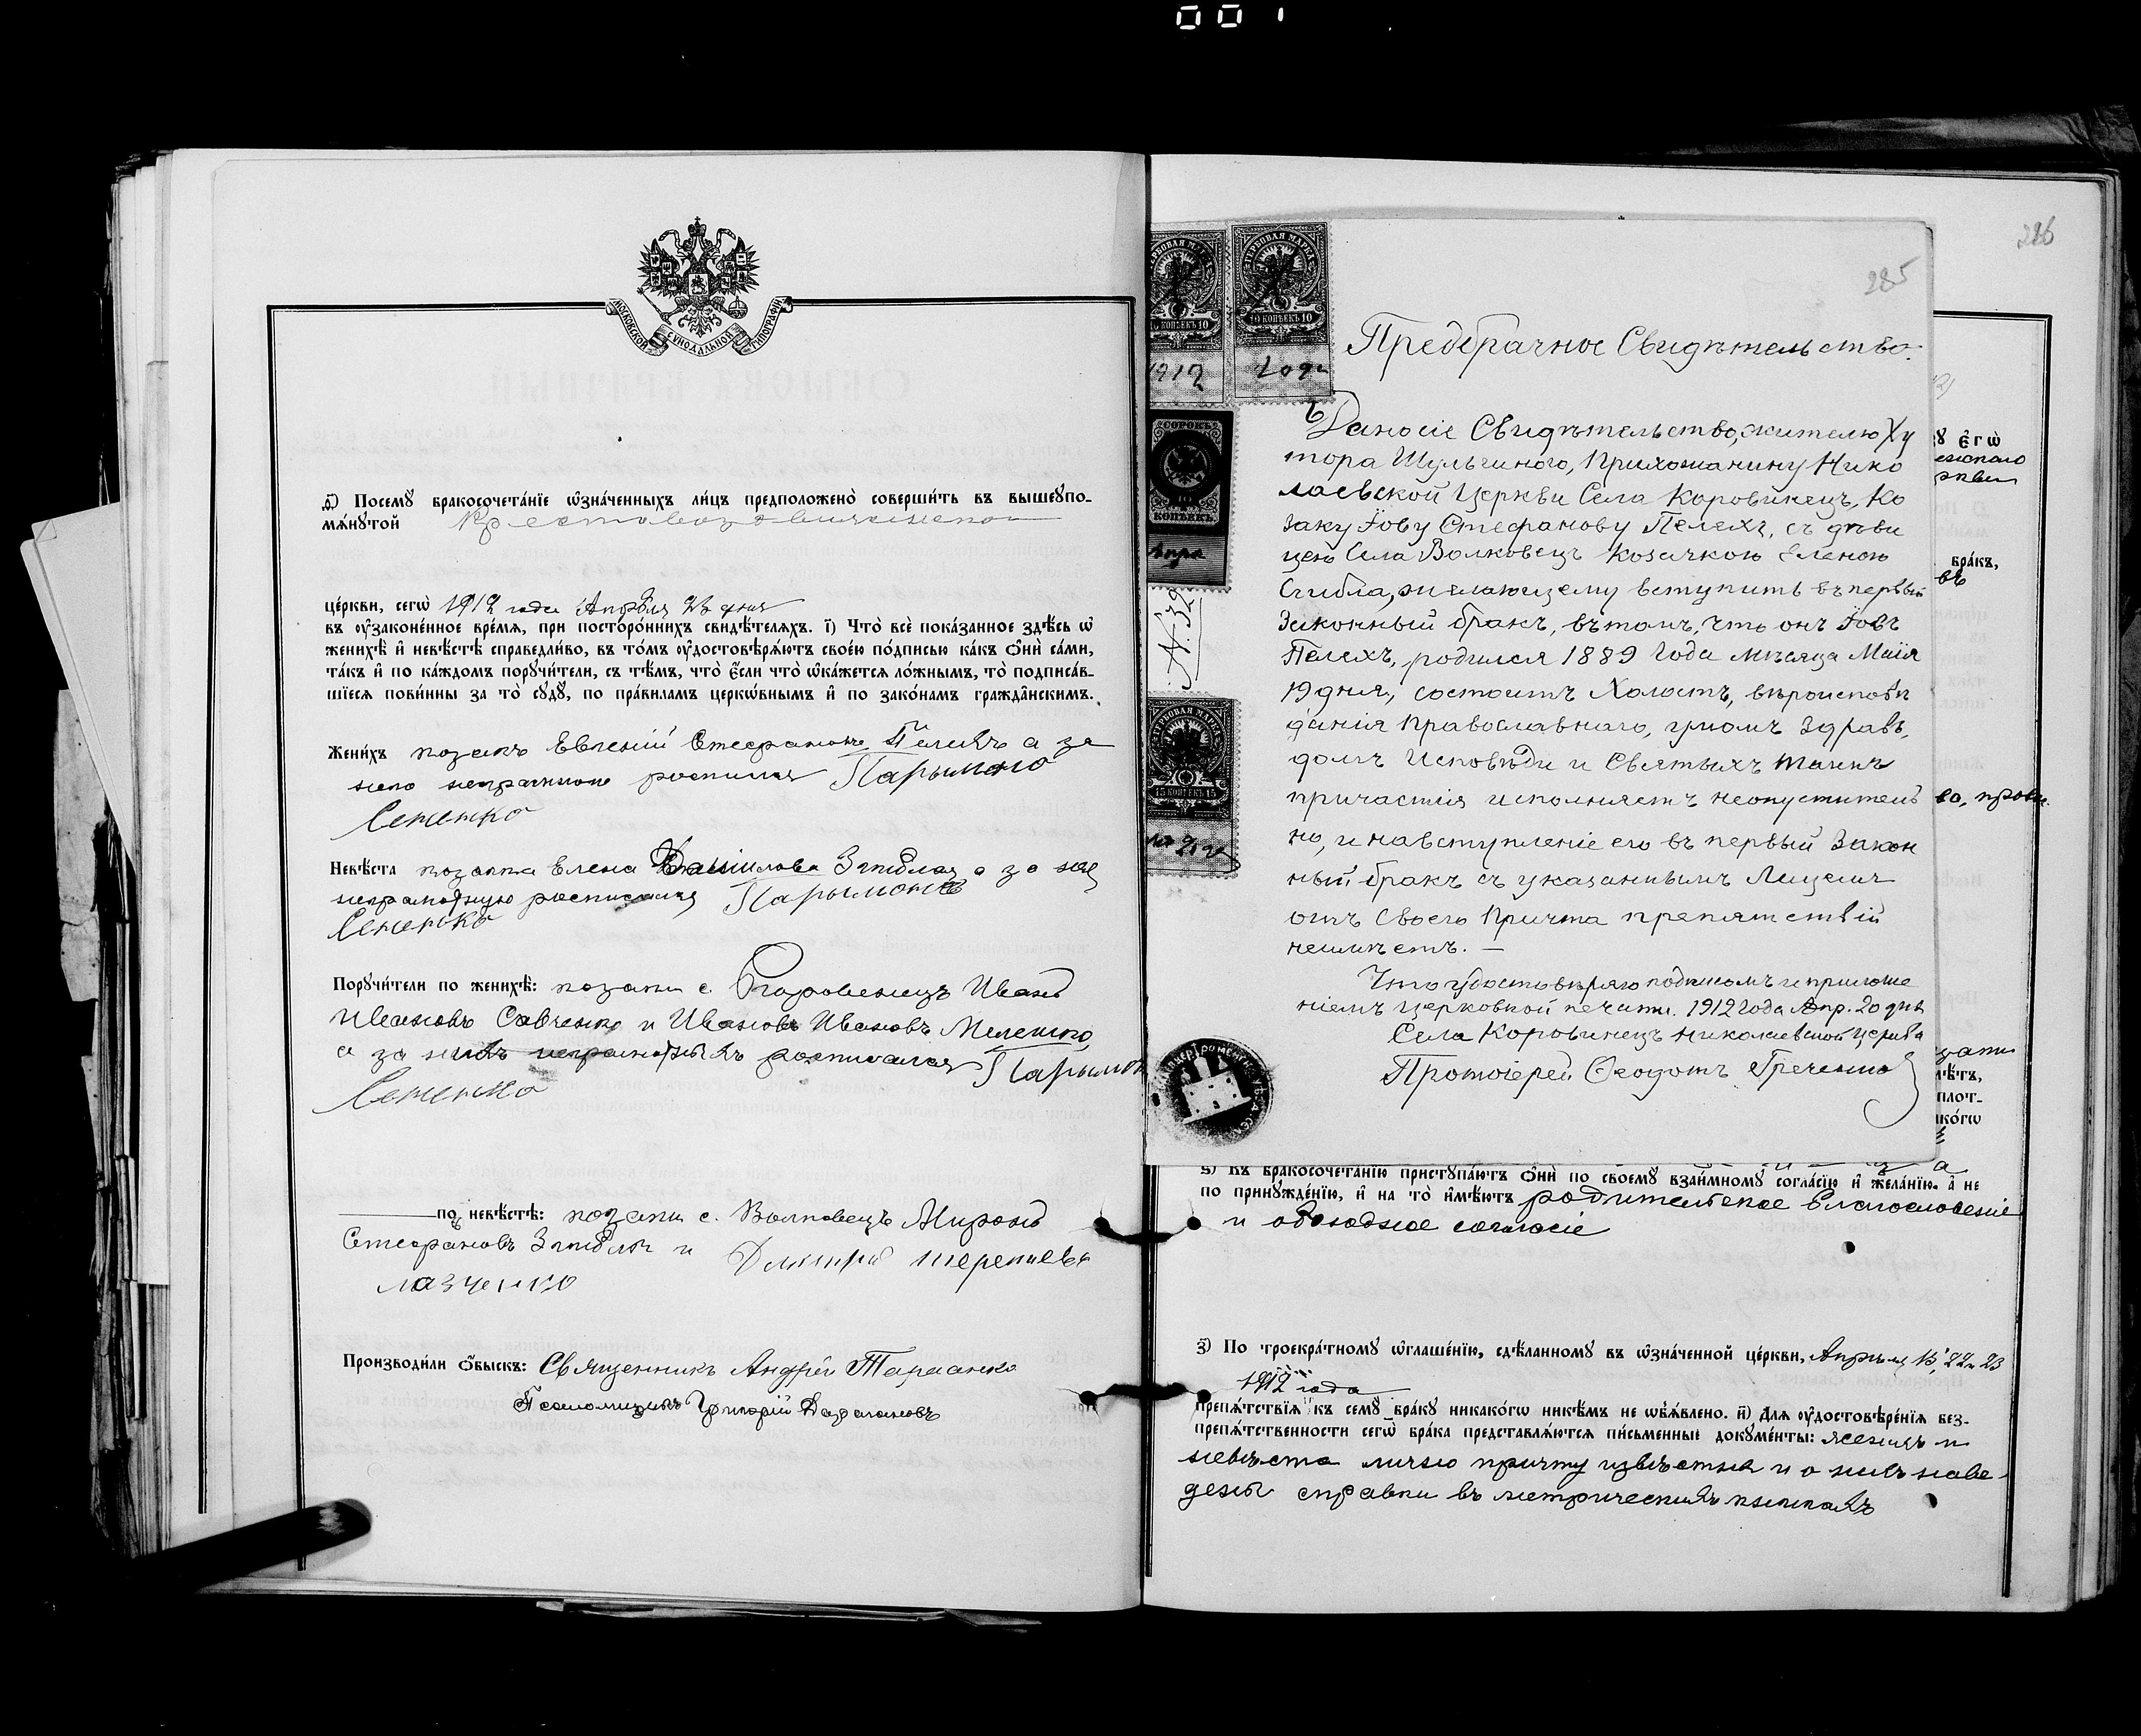 001
МОСКОВСКОЙ СѴНОДАЛЬНОЙ ТИПОГРАФІИ
Посемꙋ бракосочета́нїе ѡ҆зна́ченныхъ ли́цъ предположено̀ соверши́ть въ вышеꙋпо-
мѧ́нꙋтой Крестовоздвиженской
це́ркви, сегѡ̀ 1912 года Апрѣля 23 дня
въ ᲂу҆законе́нное вре́мѧ, при посторо́ннихъ свидѣ́телѧхъ. і҃) Что̀ всѐ пока́занное здѣ́сь ѡ҆
женихѣ̀ и҆ невѣ́стѣ справедли́во, въ то́мъ ᲂу҆достовѣрѧ́ютъ свое́ю по́дписью ка́къ ѻ҆нѝ са́ми,
та́къ и҆ по ка́ждомъ порꙋчи́тели, съ тѣ́мъ, что̀ є҆́сли что̀ ѡ҆ка́жетсѧ ло́жнымъ, то̀ подписа́в-
шїесѧ пови́нны за то̀ сꙋдꙋ̀, по пра́виламъ церко́внымъ и҆ по зако́намъ гражда́нскимъ.
Жени́хъ козакъ Евгений Стефановъ Пелехъ а за
него неграмотного росписался Парымонъ
Сененко
Невѣ́ста козачка Елена Даниилова Згибла а за нее
неграмотную росписался Парымонъ
Сененко
Порꙋчи́тели по женихѣ̀: козаки с. Коровинецъ Иванъ
Ивановъ Савченко и Иванъ Ивановъ Мелешко,
а за нихъ неграмотныхъ росписался Парымон
Сененко
по невѣ́стѣ: козаки с. Волковецъ Миронъ
Стефановъ Згибла и Дмитрій
лазченко
Производи́ли ѻ҆́быскъ: Священникъ Андрей
Псаломщикъ Григорій Дараганъ
286
285
ГЕРБОВАЯ МАРКА
10 КОПѢЕКЪ 10
10 КОПѢЕКЪ 10
1912 года
Предбрачное Свидѣтельство.
Дано сіе Свидѣтельство, жителю Ху
тора Шульгиного, прихожанину Нико
лаевской Церкви Села Коровинецъ, Ко
заку Іову Стефанову Пелехъ, съ дѣви
цею Села Волковецъ Козачкою Еленою
Сгибла, желающему вступить въ первый
Законный бракъ, въ томъ, что онъ Іовъ
Пелехъ, родился 1889 Года Мѣсяца Маія
19 дня, состоитъ Холостъ, вѣроисповѣ
данія Православнаго, умомъ здравъ,
долгъ Исповѣди и Святыхъ Таинъ
причастія исполняетъ неопуститель
но, и на вступленіе его въ первый Закон
ный бракъ съ указаннымъ Лицемъ
отъ Своего Причта препятствій
не имѣетъ. —
Что удостовѣряю подписомъ и приложе
ніемъ церковной печати. 1912 Года Апр. 20 дня
Села Коровинецъ Николаевской Церкви
Протоіерей Ѳеодотъ Греченко
СОРОКЪ
КОПѢЕКЪ
ГЕРБОВАЯ МАРКА
15 КОПѢЕКЪ 15
є҆гѡ̀
бра́къ,
Къ бракосочета́нїю пристꙋпа́ютъ ѻ҆нѝ по своемꙋ̀ взаи́мномꙋ согла́сїю и҆ жела́нїю, а҆ не
по принꙋжде́нїю, и҆ на то̀ и҆мѣ́ютъ родительское благословеніе
и обоюдное согласіе
з҃) По троекра́тномꙋ ѡ҆глаше́нїю, сдѣ́ланномꙋ въ ѡ҆зна́ченной це́ркви, Апрѣля 15, 22 и 23
1912 года
препѧ́тствїѧ къ семꙋ̀ бра́кꙋ никако́гѡ никѣ́мъ не ѡ҆б̾ѧ́влено. и҃) Длѧ ᲂу҆достовѣре́нїѧ без-
препѧ́тственности сегѡ̀ бра́ка представлѧ́ютсѧ пи́сьменные докꙋме́нты: женихъ и
невѣста лично причту извѣстны и о нихъ наве-
дены справки въ метрическихъ книгахъ